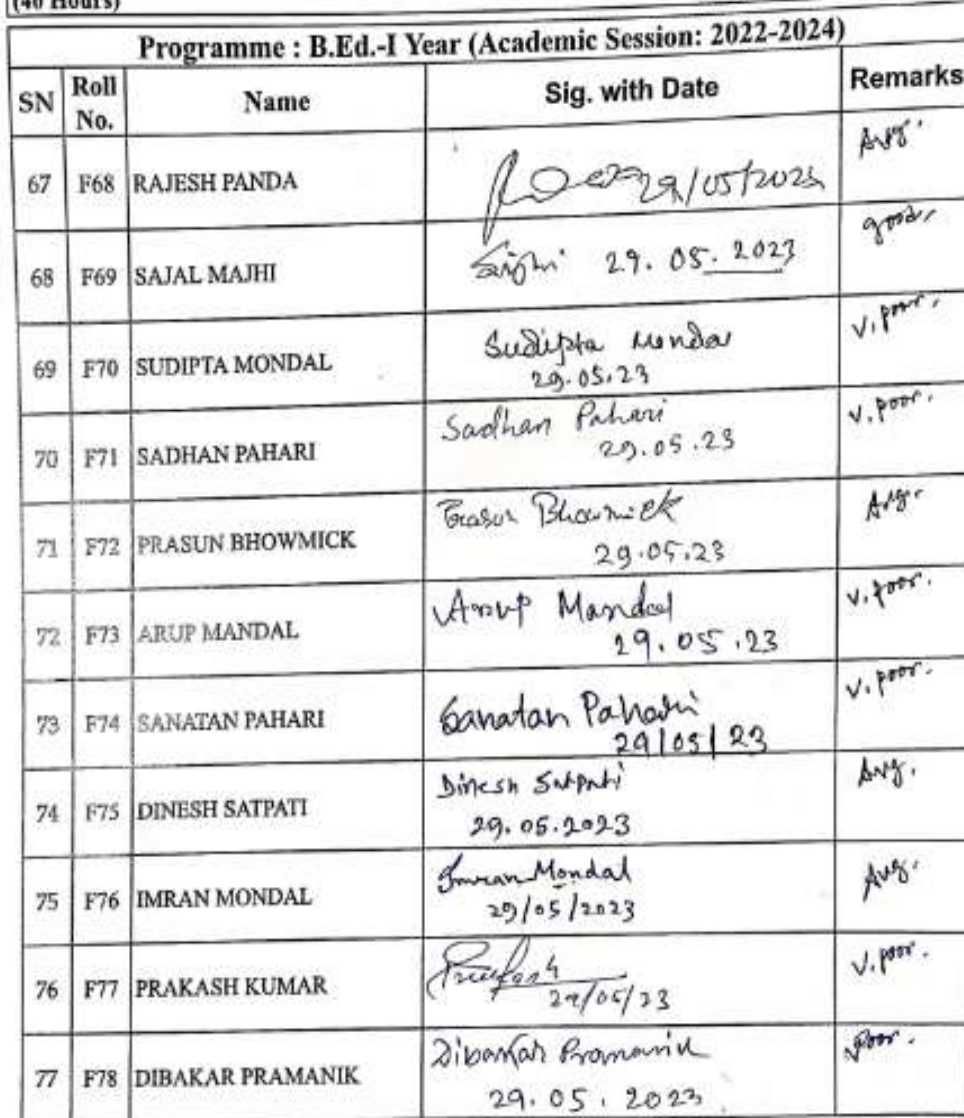 (40 Hours)
Programme : B.Ed.-I Year (Academic Session: 2022-2024)
SN Roll No. Name Sig. with Date Remarks
67 F68 RAJESH PANDA 29/05/2023 Avg.
68 F69 SAJAL MAJHI 29. 05. 2023 good.
69 F70 SUDIPTA MONDAL Sudipta Mondal v. poor.
29.05.23
70 F71 SADHAN PAHARI Sadhan Pahari v. poor.
29.05.23
71 F72 PRASUN BHOWMICK Prasun Bhowmick Avg.
29.05.23
72 F73 ARUP MANDAL Arup Mandal v. poor.
29.05.23
73 F74 SANATAN PAHARI Sanatan Pahari v. poor.
29/05/23
74 F75 DINESH SATPATI Dinesh Satpati Avg.
29.05.2023
75 F76 IMRAN MONDAL Imran Mondal Avg.
29/05/2023
76 F77 PRAKASH KUMAR Prakash v. poor.
29/05/23
77 F78 DIBAKAR PRAMANIK Dibakar Pramanik poor.
29.05.2023